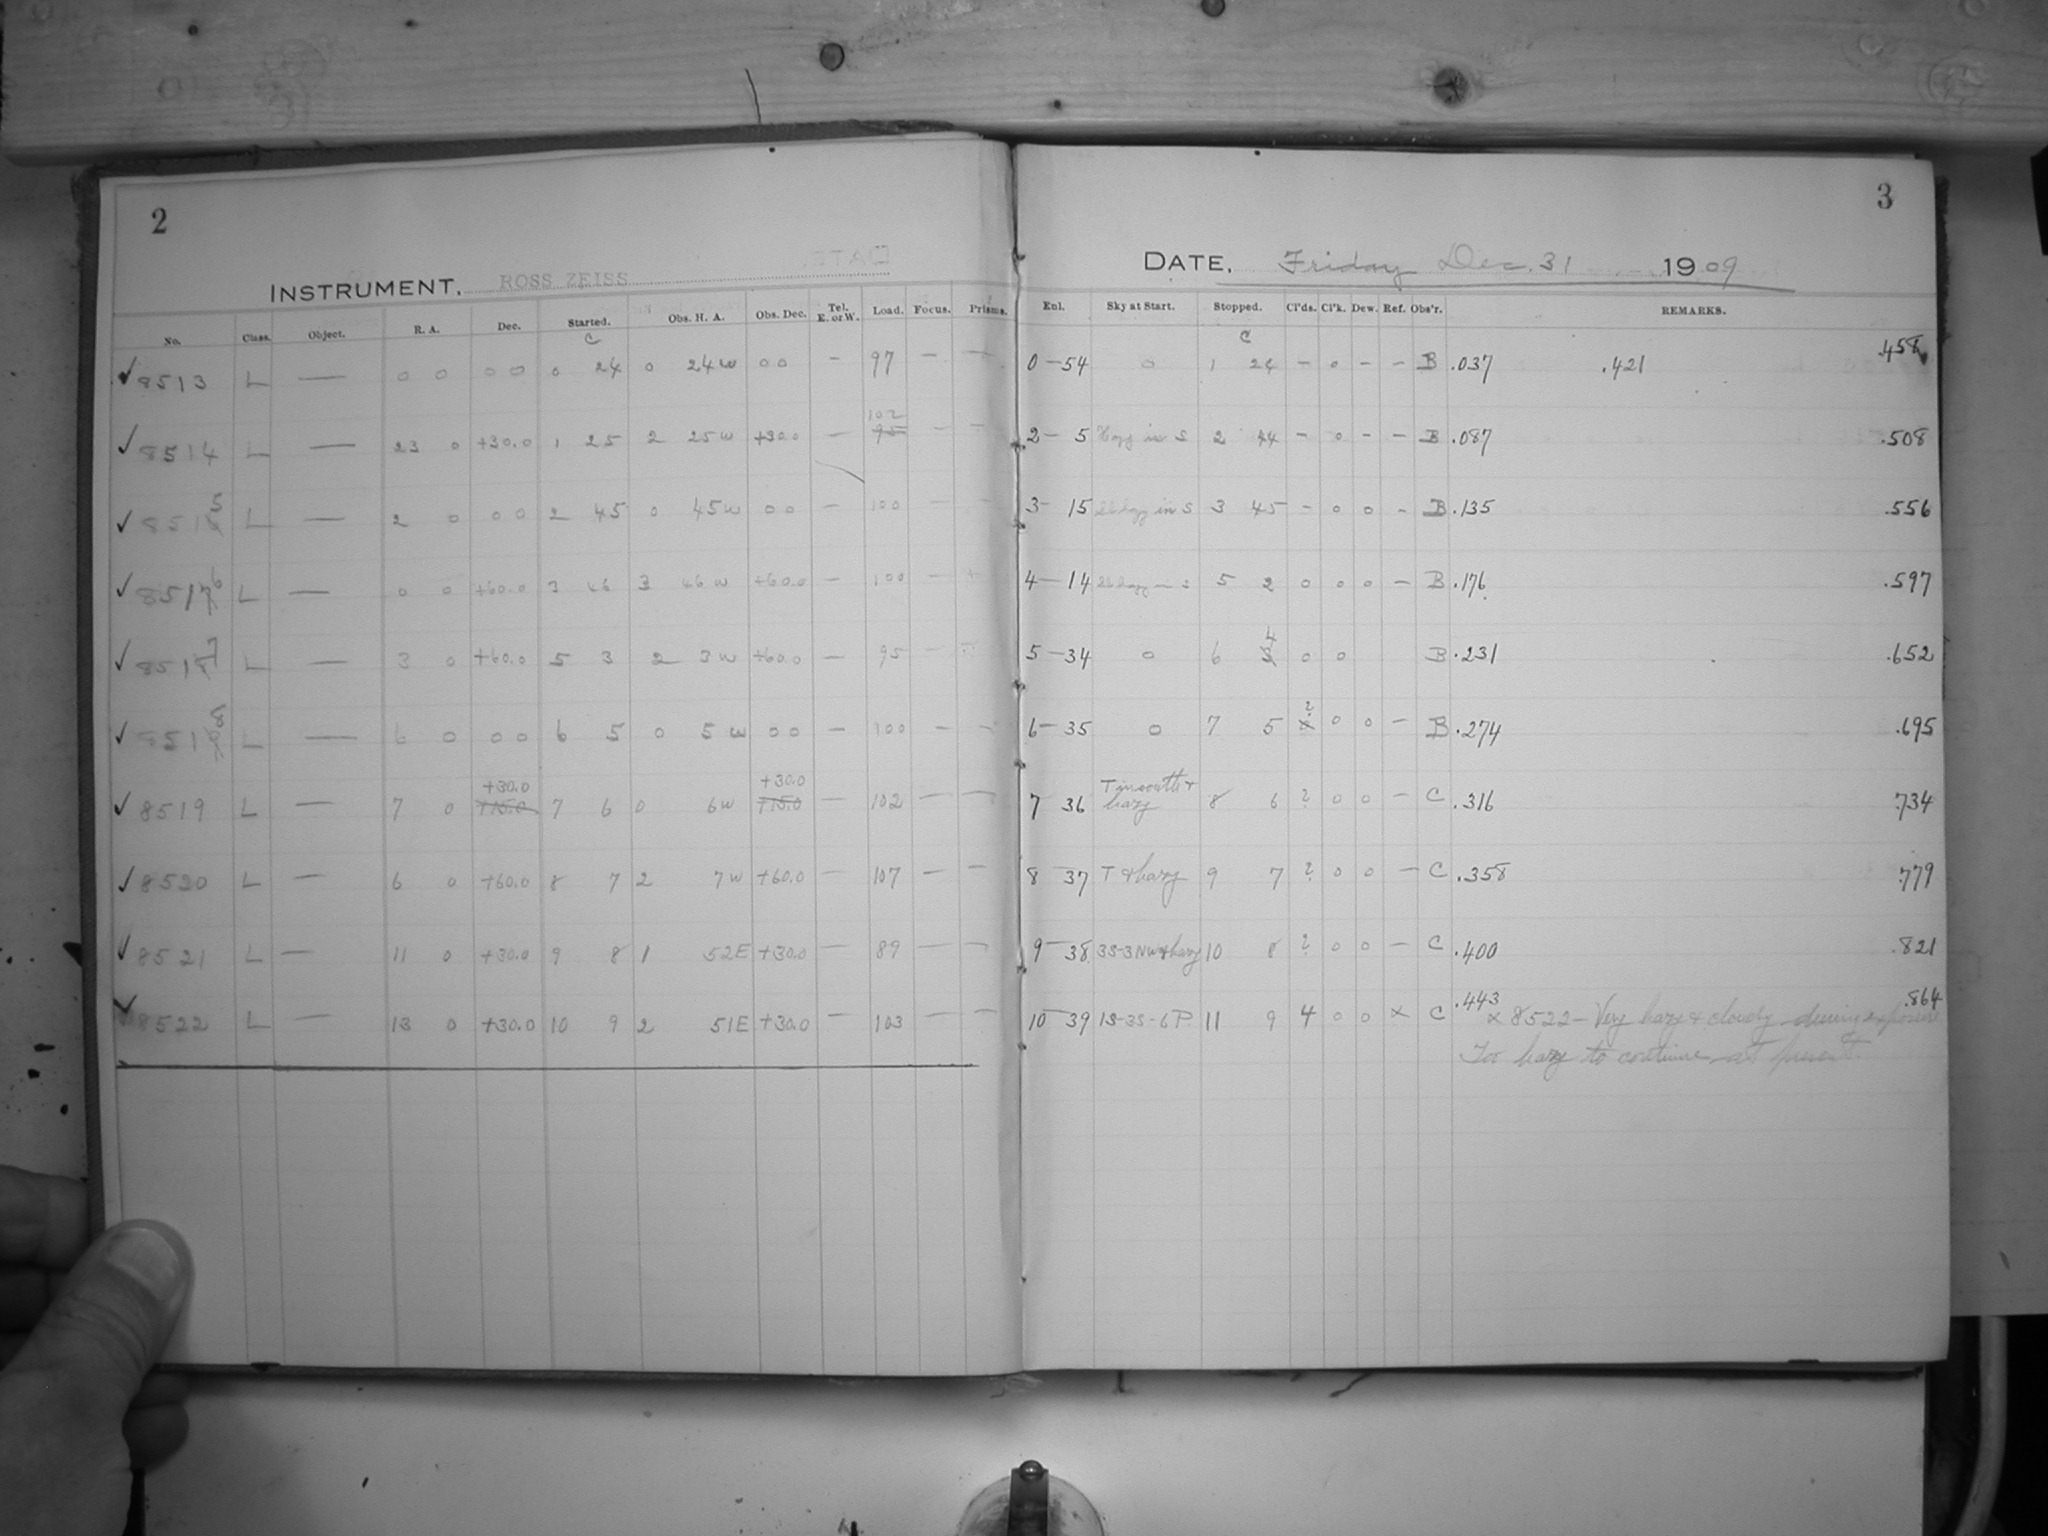 2
INSTRUMENT, ROSS ZEISS
No. Class. Object. R. A. Dec. Started. Obs. H. A. Obs. Dec. Tel. E. or W. Load. Focus. Prisms.
C
8513 L — 0 0 0 0 0 24 0 24 W 0 0 — 97 — —
102
8514 L — 23 0 +30.0 1 25 2 25 W +30.0 — 95 — —
5
851 L — 2 0 0 0 2 45 0 45 W 0 0 — 100 — —
6
8517 L — 0 0 +60.0 3 46 3 46 W +60.0 — 100 —
7
8518 L — 3 0 +60.0 5 3 2 3 W +60.0 — 95 —
8
851 L — 6 0 0 0 6 5 0 5 W 0 0 — 100 — —
+30.0 +30.0
8519 L — 7 0 +15.0 7 6 0 6 W +15.0 — 102 — —
8520 L — 6 0 +60.0 8 7 2 7 W +60.0 — 107 — —
8521 L — 11 0 +30.0 9 8 1 52 E +30.0 — 89 — —
8522 L — 13 0 +30.0 10 9 2 51 E +30.0 — 103 — —
3
DATE, Friday Dec. 31 1909
Enl. Sky at Start. Stopped. Cl'ds. Cl'k. Dew. Ref. Obs'r. REMARKS.
C
0—54 0 1 24 — 0 — — B .037 .421 .458
2—5 Hazy in S 2 44 — 0 — — B .087 .508
3—15 hazy in S 3 45 — 0 0 — B .135 .556
4—14 hazy in S 5 2 0 0 0 — B .176 .597
4
5—34 0 6 3 0 0 B .231 .652
?
6—35 0 7 5 x 0 0 — B .274 .695
7 36 T in south + hazy 8 6 ? 0 0 — C .316 .734
8 37 T + hazy 9 7 ? 0 0 — C .358 .779
9—38 3S-3NW + hazy 10 8 ? 0 0 — C .400 .821
10—39 1S-3S-6P 11 9 4 0 0 x C .443 .864
x 8522 — Very hazy + cloudy during exposure
Too hazy to continue at present.